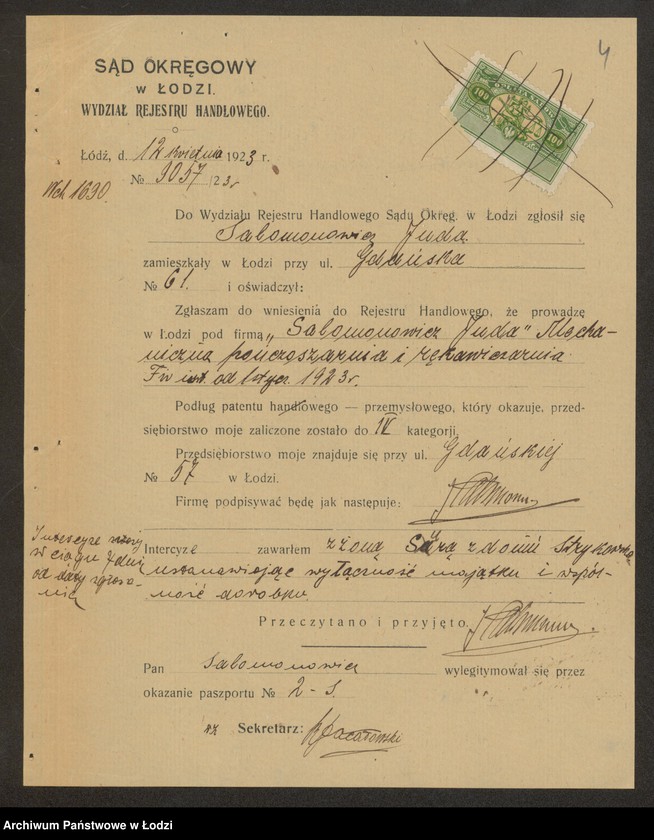 4
SĄD OKRĘGOWY
w ŁODZI.
WYDZIAŁ REJESTRU HANDLOWEGO.
100 100
Łódź, d. 12 kwietnia 1923 r.
№ 9057/23r
Wch 1690.
Do Wydziału Rejestru Handlowego Sądu Okręg. w Łodzi zgłosił się
Salomonowicz Juda
zamieszkały w Łodzi przy ul. Gdańska
№ 61. i oświadczył:
Zgłaszam do wniesienia do Rejestru Handlowego, że prowadzę
w Łodzi pod firmą „Salomonowicz Juda" Mecha-
niczna pończoszarnia i rękawiczarnia.
Fw ist. od 1 stycz. 1923 r.
Podług patentu handlowego — przemysłowego, który okazuje, przed-
siębiorstwo moje zaliczone zostało do IV kategorji.
Przedsiębiorstwo moje znajduje się przy ul. Gdańskiej
№ 57 w Łodzi.
Firmę podpisywać będę jak następuje:
Intercyzę zawarłem z żoną Surą z domu Strykowską
ustanawiając wyłączność majątku i wspól-
ność dorobku
Intercyzę złożę
w ciągu 7 dni
od daty zgłosze-
nia
Przeczytano i przyjęto.
Pan Salomonowicz wylegitymował się przez
okazanie paszportu № 2-S.
Sekretarz:
Archiwum Państwowe w Łodzi